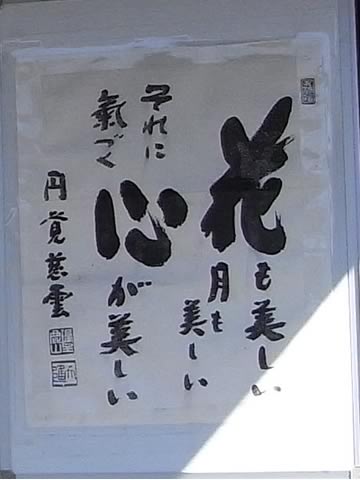 花も美しい
月も
美しい
それに
氣づく
心が美しい
円覚慈雲